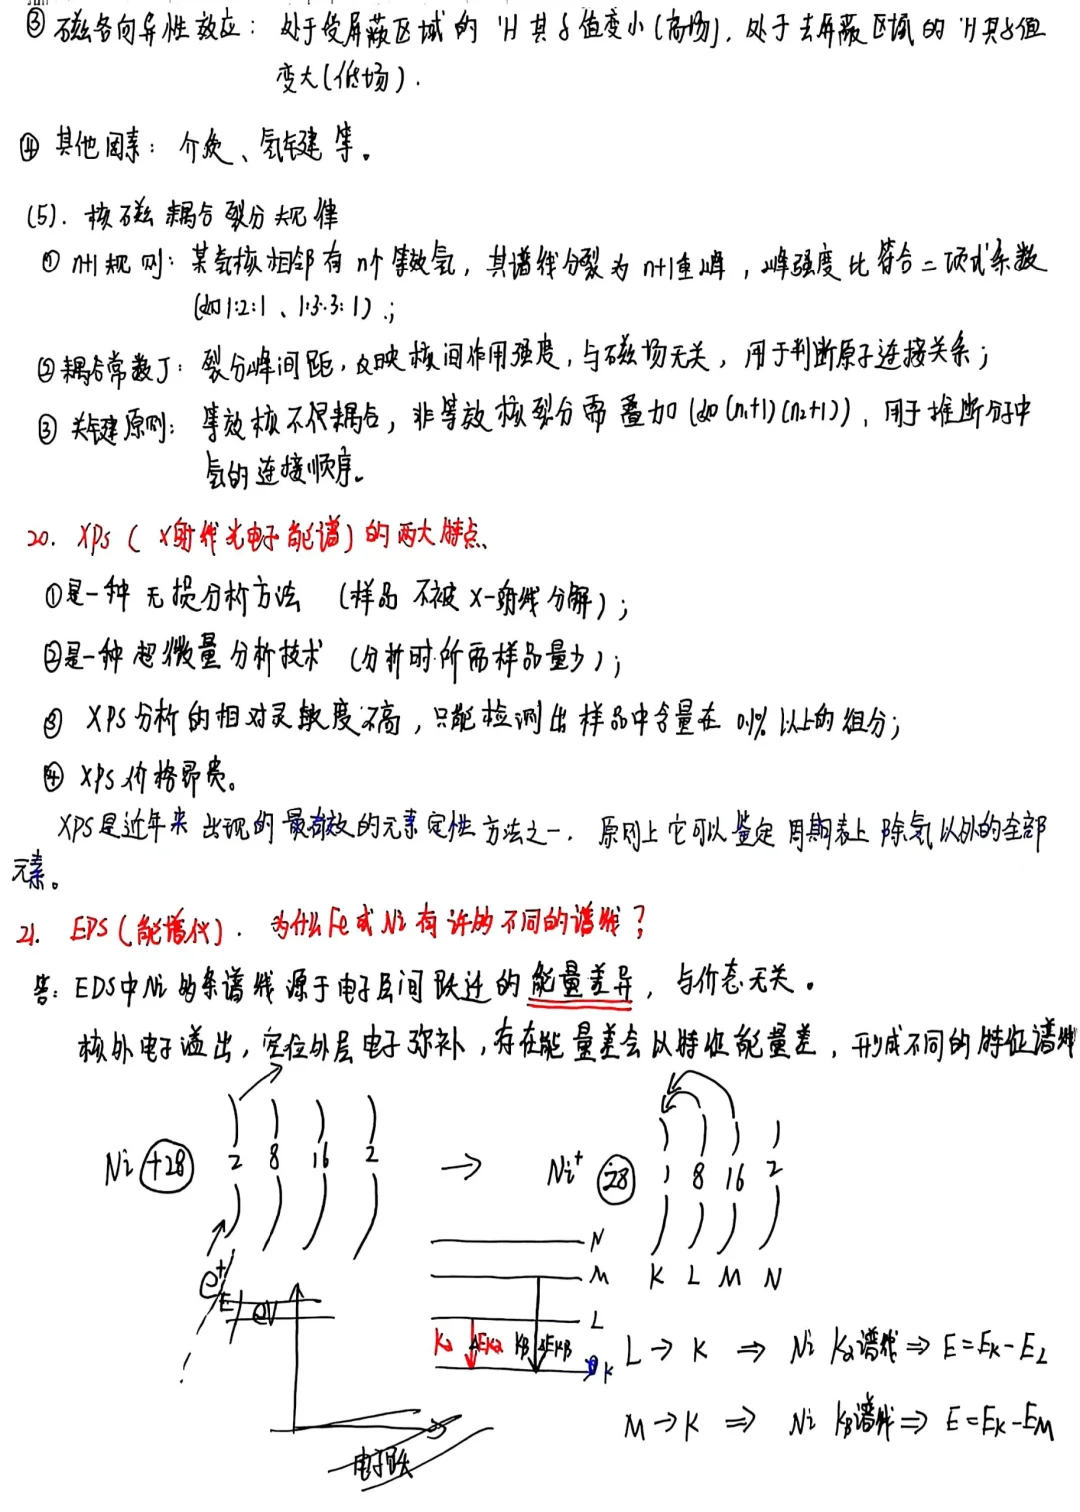 ③ 磁各向异性效应：处于受屏蔽区域的 ¹H 其δ值变小(高场)，处于去屏蔽区域的 ¹H其δ值
变大(低场).
④ 其他因素：介质、氢键等。
(5). 核磁耦合裂分规律
① n+1规则：某氢核相邻有n个等效氢，其谱线分裂为n+1重峰，峰强度比符合二项式系数
(如1:2:1、1:3:3:1)；
②耦合常数J：裂分峰间距，反映核间作用强度，与磁场无关，用于判断原子连接关系；
③ 关键原则：等效核不保耦合，非等效核裂分需叠加(如(n₁+1)(n₂+1))，用于推断分子中
氢的连接顺序。
20. XPS (X射线光电子能谱)的两大特点、
①是一种无损分析方法 (样品不被X-射线分解)；
②是一种超微量分析技术 (分析时所需样品量少)；
③ XPS分析的相对灵敏度不高，只能检测出样品中含量在0.1%以上的组分；
④ XPS价格昂贵。
XPS是近年来出现的最有效的元素定性方法之一. 原则上它可以鉴定周期表上除氢以外的全部
元素。
21. EDS(能谱仪). 为什么Fe或Ni有许多不同的谱线？
答：EDS中Ni的多条谱线源于电子层间跃迁的能量差异，与价态无关。
核外电子溢出，空位外层电子弥补，存在能量差会以特征能量差，形成不同的特征谱线
Ni +28 2 8 16 2 → Ni⁺ +28 1 8 16 2
K L M N
e⁺
E eV
电子跃
N
M
L
K
Kα ΔEKα Kβ ΔEKβ
L → K ⇒ Ni Kα谱线 ⇒ E=EK-EL
M→K ⇒ Ni Kβ谱线 ⇒ E=EK-EM